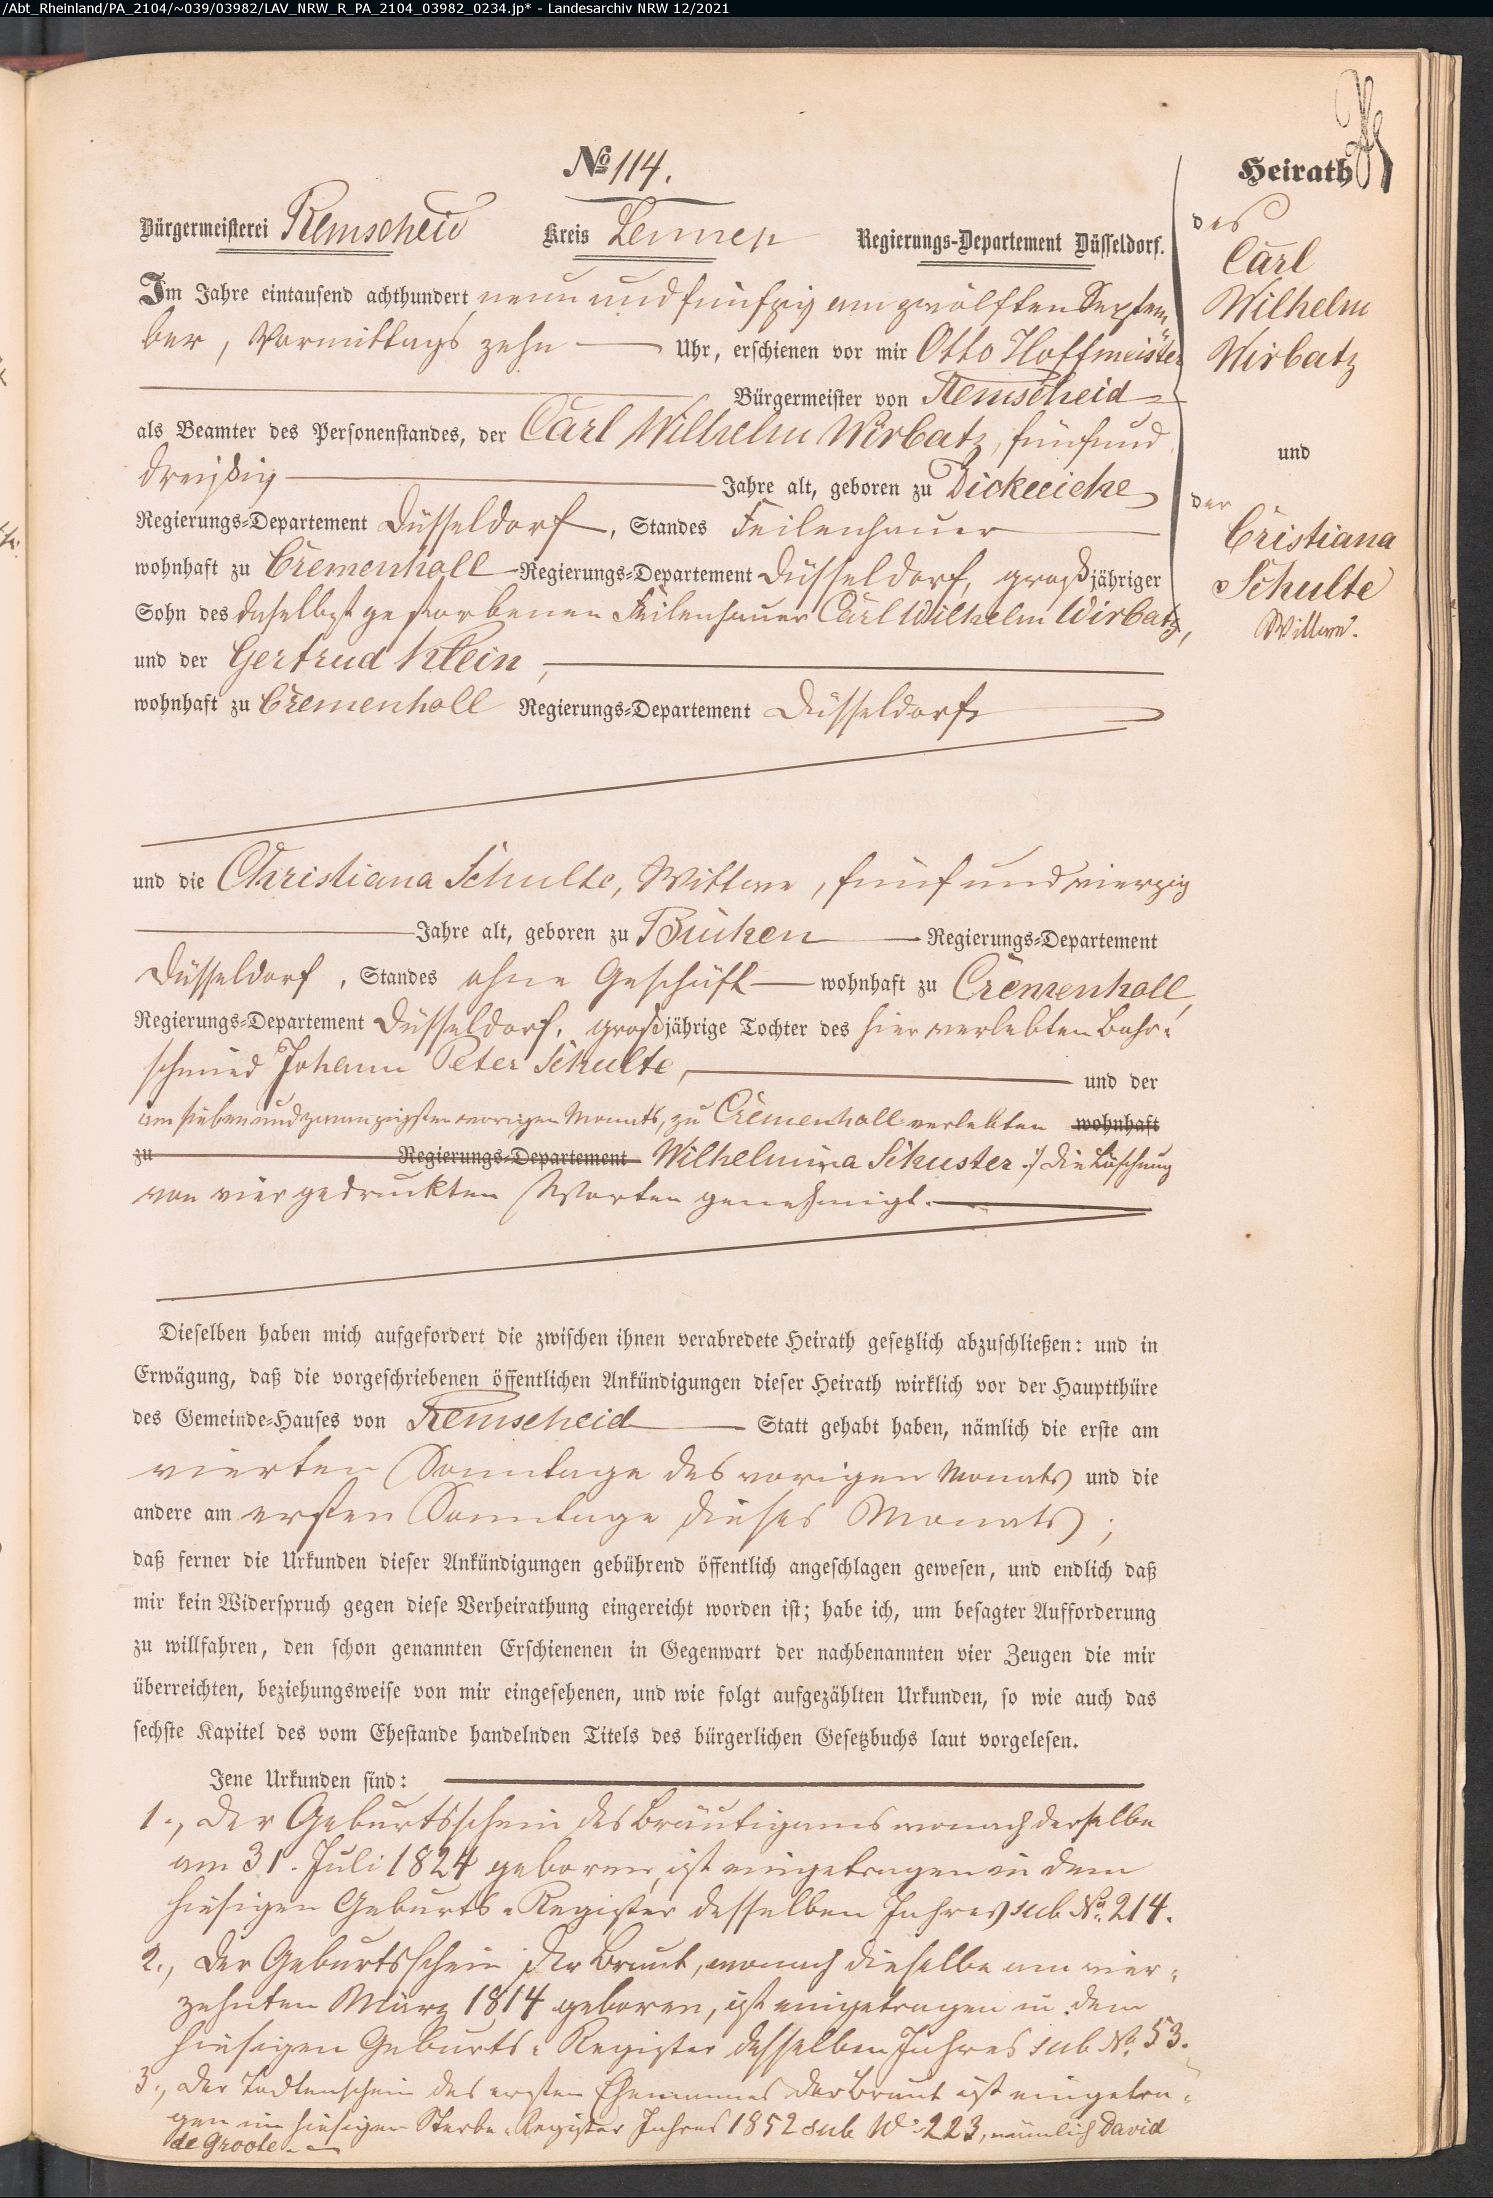 /Abt_Rheinland/PA_2104/~039/03982/LAV_NRW_R_PA_2104_03982_0234.jp* - Landesarchiv NRW 12/2021
№ 114.
Bürgermeisterei Remscheid Kreis Lennep Regierungs-Departement Düsseldorf.
Im Jahre eintausend achthundert neun und fünfzig am zwölften Septem
ber, Vormittags zehn Uhr, erschienen vor mir Otto Hoffmeister
Bürgermeister von Remscheid
als Beamter des Personenstandes, der Carl Wilhelm Wirbatz, fünf und
dreißig Jahre alt, geboren zu Dickeeiche
Regierungs-Departement Düsseldorf, Standes Feilenhauer
wohnhaft zu Cremenholl Regierungs-Departement Düsseldorf, großjähriger
Sohn des daselbst gestorbenen Feilenhauer Carl Wilhelm Wirbatz,
und der Gertrud Klein,
wohnhaft zu Cremenholl Regierungs-Departement Düsseldorf
und die Christiana Schulte, Wittwe, fünf und vierzig
Jahre alt, geboren zu Büchen Regierungs-Departement
Düsseldorf, Standes ohne Geschäft wohnhaft zu Cremenholl
Regierungs-Departement Düsseldorf, großjährige Tochter des hier verlebten Bohr-
schmied Johann Peter Schulte, und der
am sieben und zwanzigsten vorigen Monats, zu Cremenholl verlebten wohnhaft
zu Regierungs-Departement Wilhelmina Schuster ./ die Löschung
von vier gedruckten Worten genehmigt.
Dieselben haben mich aufgefordert die zwischen ihnen verabredete Heirath gesetzlich abzuschließen: und in
Erwägung, daß die vorgeschriebenen öffentlichen Ankündigungen dieser Heirath wirklich vor der Hauptthüre
des Gemeinde-Hauses von Remscheid Statt gehabt haben, nämlich die erste am
vierten Sonntage des vorigen Monats und die
andere am ersten Sonntage dieses Monats;
daß ferner die Urkunden dieser Ankündigungen gebührend öffentlich angeschlagen gewesen, und endlich daß
mir kein Widerspruch gegen diese Verheirathung eingereicht worden ist; habe ich, um besagter Aufforderung
zu willfahren, den schon genannten Erschienenen in Gegenwart der nachbenannten vier Zeugen die mir
überreichten, beziehungsweise von mir eingesehenen, und wie folgt aufgezählten Urkunden, so wie auch das
sechste Kapitel des vom Ehestande handelnden Titels des bürgerlichen Gesetzbuchs laut vorgelesen.
Jene Urkunden sind:
1., Der Geburtsschein des Bräutigams wonach derselbe
am 31. Juli 1824 geboren, ist eingetragen in dem
hiesigen Geburts-Register desselben Jahres sub No. 214.
2., Der Geburtsschein der Braut, wonach dieselbe am vier-
zehnten März 1814 geboren, ist eingetragen in dem
hiesigen Geburts-Register desselben Jahres sub No. 53.
3., Der Todtenschein des ersten Ehemannes der Braut ist eingetra-
gen im hiesigen Sterbe-Register Jahres 1852 sub No. 223, nämlich David
de Groote.
Heirath
des
Carl
Wilhelm
Wirbatz
und
der
Cristiana
Schulte
Wittwe.